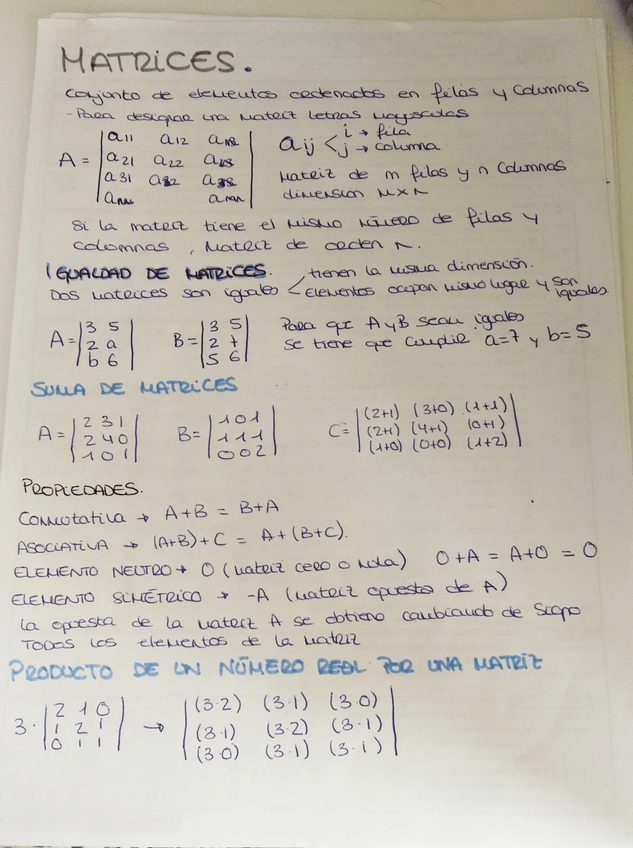 MATRICES.
Conjunto de elementos ordenados en filas y columnas
- Para designar una matriz letras mayusculas
A = |a11 a12
a21 a22
a31
aij < i → fila
j → columna
Matriz de m filas y n columnas
dimension m x n
Si la matriz tiene el mismo número de filas y
columnas, matriz de orden n.
IGUALDAD DE MATRICES.
Dos matrices son iguales < tienen la misma dimensión.
Elementos ocupan mismo lugar y son iguales
A = |3 5|
|2 a|
|b 6|
B = |3 5|
|2 7|
|5 6|
Para que A y B sean iguales
se tiene que cumplir a=7 y b=5
SUMA DE MATRICES
A = |2 3 1|
|2 4 0|
|1 0 1|
B = |1 0 1|
|1 1 1|
|0 0 2|
C = |(2+1) (3+0) (1+1)|
|(2+1) (4+1) (0+1)|
|(1+0) (0+0) (1+2)|
PROPIEDADES.
Conmutativa → A+B = B+A
ASOCIATIVA → (A+B)+C = A+(B+C).
ELEMENTO NEUTRO → O (matriz cero o nula) O+A = A+O = O
ELEMENTO SIMÉTRICO → -A (matriz opuesta de A)
La opuesta de la matriz A se obtiene cambiando de signo
TODOS los elementos de la matriz
PRODUCTO DE UN NÚMERO REAL POR UNA MATRIZ
3 · |2 1 0|
|1 2 1|
|0 1 1|
→ |(3·2) (3·1) (3·0)|
|(3·1) (3·2) (3·1)|
|(3·0) (3·1) (3·1)|